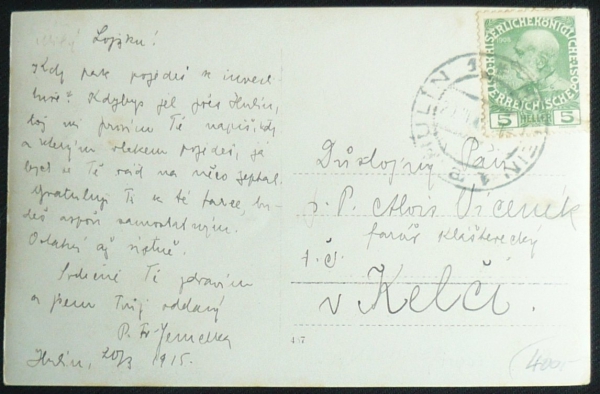 Lojzku!
Kdy pak pojedeš k investi-
tuře? Kdybys jel přes Hulín,
tož mi prosím Tě napiš, kdy
a kterým vlakem pojedeš, já
bych se Tě rád na něco zeptal.
Gratuluji Ti k té farce, bu-
deš aspoň samostatným.
Ostatně až ústně.
Srdečně Tě zdravím
a jsem Tvůj oddaný
P. Fr. Jemelka
Hulín, 20/3 1915.
KAISERLICHE KÖNIGLICHE
ÖSTERREICHISCHE POST
5 HELLER 5
HULÍN
HULLEIN 1
Důstojný Pán
p. P. Alois Vícenék
farář Klášterecký
t. č.
v Kelči.
47
400,-